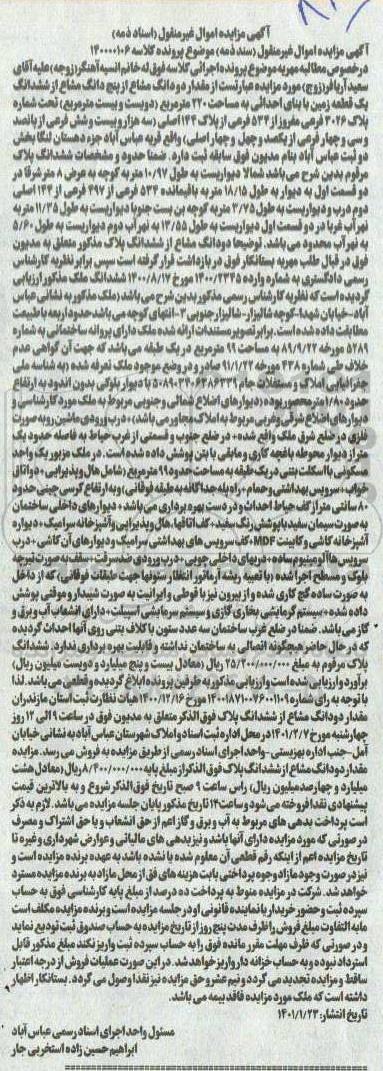 آگهی مزایده اموال غیرمنقول (اسناد ذمه)
آگهی مزایده اموال غیرمنقول (سند ذمه) موضوع پرونده کلاسه ۱۴۰۰۰۰۱۰۶
درخصوص مطالبه مهریه موضوع پرونده اجرائی کلاسه فوق له خانم انسیه آهنگر (زوجه) علیه آقای
سعید آریافر (زوج) مورد مزایده عبارتست از مقدار دو دانگ مشاع از پنج دانگ مشاع از ششدانگ
یک قطعه زمین با بنای احداثی به مساحت ۲۲۰ مترمربع (دویست و بیست مترمربع) تحت شماره
پلاک ۳۰۲۶ فرعی مفروز از ۵۳۴ فرعی از پلاک ۱۴۴ اصلی (سه هزار و بیست و شش فرعی از پانصد
وسی و چهار فرعی از یکصد و چهل و چهار اصلی) واقع قریه عباس آباد جزء دهستان لنگا بخش
دو ثبت عباس آباد بنام مدیون فوق سابقه ثبت دارد. ضمنا حدود و مشخصات ششدانگ پلاک
مرقوم بدین شرح می باشد شمالا دیواریست به طول ۱۰/۹۷ متر به کوچه به عرض ۸ متر شرقا در
دو قسمت اول به دیوار به طول ۱۸/۱۵ متر به باقیمانده ۵۳۴ فرعی از ۴۹۷ فرعی از ۱۴۴ اصلی
دوم درب و دیواریست به طول ۳/۷۵ متر به کوچه بن بست جنوبا دیواریست به طول ۱۱/۳۵ متر به
نهر آب غربا در دو قسمت اول دیواریست به طول ۱۳/۵۵ به نهر آب دوم دیواریست به طول ۵/۶۰
به نهر آب محدود می باشد. توضیحا دودانگ مشاع از ششدانگ پلاک مذکور متعلق به مدیون
فوق در قبال طلب مهریه بستانکار فوق در بازداشت قرار گرفته است سپس برابر نظریه کارشناس
رسمی دادگستری به شماره وارده ۱۴۰۰/۲۳۴۵ مورخ ۱۴۰۰/۸/۱۷ ششدانگ ملک مذکور ارزیابی
گردیده است که نظریه کارشناس رسمی مذکور بدین شرح می باشد (ملک مذکور به نشانی عباس
آباد-خیابان شهدا-کوچه شالیزار-شالیزار جنوبی ۳-انتهای کوچه می باشد حدود اربعه با طبیعت
مطابقت داده شده است. برابر تصویر مستندات ارائه شده ملک دارای پروانه ساختمانی به شماره
۵۲۸۹ مورخ ۸۹/۹/۲۲ به مساحت ۹۹ مترمربع در یک طبقه می باشد که جهت آن گواهی عدم
خلاف طی شماره ۴۳۸ مورخه ۹۱/۱/۲۲ صادر و در وضع موجود ملک تعرفه شده (به شناسه ملی
جغرافیایی املاک و مستغلات جام ) با دیوار بلوکی بدون اندود به ارتفاع
حدود ۱/۸۰ متر محصور بوده (دیوارهای اضلاع شمالی و جنوبی مربوط به ملک مورد کارشناسی و
دیوارهای اضلاع شرقی و غربی مربوط به املاک مجاور می باشد)+درب ورودی ماشین رو به صورت
فلزی در ضلع شرق ملک واقع شده+در ضلع جنوب و قسمتی از غرب حیاط به فاصله حدود یک
متر از دیوار محوطه باغچه کاری و مابقی با بتن پوشش داده شده است. در ملک مزبور یک واحد
مسکونی با اسکلت بتنی در یک طبقه به مساحت حدود ۹۹ مترمربع (شامل هال و پذیرایی+دو اتاق
خواب+سرویس بهداشتی و حمام+راه پله جداگانه به طبقه فوقانی) و به ارتفاع کرسی چینی حدود
۸۰ سانتی متر از کف حیاط احداث و در دست بهره برداری می باشد+دیوارهای داخلی ساختمان
به صورت سیمان سفید با پوشش رنگ سفید+کف اتاقها. هال و پذیرایی و آشپزخانه سرامیک+دیواره
آشپزخانه کاشی و کابینت MDF+کف سرویس های بهداشتی سرامیک و دیوارهای آن کاشی+درب
سرویس ها آلومینیوم ساده+دربهای داخلی چوبی+درب ورودی ضدسرقت+سقف به صورت تیرچه
بلوک و مسطح اجرا شده (با تعبیه ریشه آرماتور انتظار ستونها جهت طبقات فوقانی) که از داخل
به صورت ساده گچ کاری شده و از بیرون نیز با قوطی و ایرانیت به صورت شیبدار و موقتی پوشش
داده شده+سیستم گرمایشی بخاری گازی و سیستم سرمایشی اسپیلت+دارای انشعاب آب و برق و
گاز می باشد. ضمنا در ضلع غرب ساختمان سه عدد ستون با کلاف بتنی روی آنها احداث گردیده
که در حال حاضر هیچگونه اتصالی به ساختمان نداشته و قابلیت بهره برداری ندارد. ششدانگ
پلاک مرقوم به مبلغ ۲۵/۲۰۰/۰۰۰/۰۰۰ ریال (معادل بیست و پنج میلیارد و دویست میلیون ریال)
برآورد و ارزیابی شده است و ارزیابی مذکور به طرفین پرونده ابلاغ گردیده و قطعی می باشد. لذا
با توجه به رای شماره ۱۴۰۰۱۸۷۱۰۰۷۶۰۰۱۱۰۹ مورخ ۱۴۰۰/۱۲/۱۶ هیات نظارت ثبت استان مازندران
مقدار دودانگ مشاع از ششدانگ پلاک فوق الذکر متعلق به مدیون فوق در ساعت ۹ الی ۱۲ روز
چهارشنبه مورخ ۱۴۰۱/۲/۷ در محل اداره ثبت اسناد و املاک شهرستان عباس آباد به نشانی خیابان
آمل-جنب اداره بهزیستی-واحد اجرای اسناد رسمی از طریق مزایده به فروش می رسد. مزایده
مقدار دودانگ مشاع از ششدانگ پلاک فوق الذکر از مبلغ پایه ۸/۴۰۰/۰۰۰/۰۰۰ ریال (معادل هشت
میلیارد و چهارصد میلیون ریال) راس ساعت ۹ صبح تاریخ فوق الذکر شروع و به بالاترین قیمت
پیشنهادی نقدا فروخته می شود و ساعت ۱۲ تاریخ مذکور پایان جلسه مزایده می باشد. لازم به ذکر
است پرداخت بدهی های مربوط به آب و برق و گاز اعم از حق انشعاب و یا حق اشتراک و مصرف
در صورتی که مورد مزایده دارای آنها باشد و نیز بدهی های مالیاتی و عوارض شهرداری و غیره تا
تاریخ مزایده اعم از اینکه رقم قطعی آن معلوم شده یا نشده باشد به عهده برنده مزایده است و
نیز در صورت وجود مازاد وجوه پرداختی بابت هزینه های فق از محل مازاد به برنده مزایده مسترد
خواهد شد. شرکت در مزایده منوط به پرداخت ده درصد از مبلغ پایه کارشناسی فوق به حساب
سپرده ثبت و حضور خریدار یا نماینده قانونی او در جلسه مزایده است و برنده مزایده مکلف است
مابه التفاوت مبلغ فروش را ظرف مدت پنج روز از تاریخ مزایده به حساب صندوق ثبت تودیع نماید
و در صورتی که ظرف مهلت مقرر مانده فوق را به حساب سپرده ثبت واریز نکند مبلغ مذکور قابل
استرداد نبوده و به حساب خزانه دار واریز خواهد شد. در این صورت عملیات فروش از درجه اعتبار
ساقط و مزایده تجدید می گردد و نیم عشر و حق مزایده نیز نقدا وصول می گردد. بستانکار اظهار
داشته است که ملک مورد مزایده فاقد بیمه می باشد.
تاریخ انتشار: ۱۴۰۱/۱/۲۳
مسئول واحد اجرای اسناد رسمی عباس آباد
ابراهیم حسین زاده استخربی جار